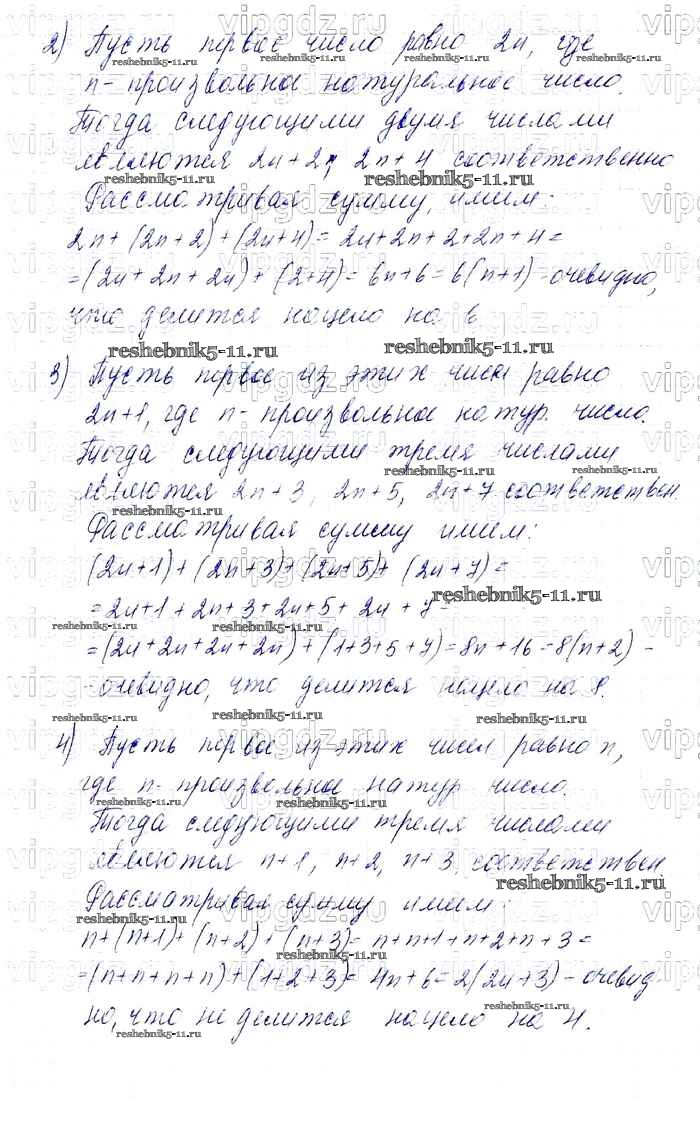 2) Пусть первое число равно 2n, где
n - произвольное натуральное число.
Тогда следующими двумя числами
являются 2n+2, 2n+4 соответственно
Рассматривая сумму, имим:
2n+(2n+2)+(2n+4)=2n+2n+2+2n+4=
=(2n+2n+2n)+(2+4)=6n+6=6(n+1)-очевидно,
что делится нацело на 6
3) Пусть первое из этих чисел равно
2n+1, где n- произвольное натур. число.
Тогда следующими тремя числами
являются 2n+3, 2n+5, 2n+7 соответствен.
Рассматривая сумму имим:
(2n+1)+(2n+3)+(2n+5)+(2n+7)=
=2n+1+2n+3+2n+5+2n+7=
=(2n+2n+2n+2n)+(1+3+5+7)=8n+16=8(n+2) -
-очевидно, что делится нацело на 8.
4) Пусть первое из этих чисел равно n,
где n- произвольное натур число.
Тогда следующими тремя числами
являются n+1, n+2, n+3 соответствен
Рассматривая сумму имим:
n+(n+1)+(n+2)+(n+3)=n+n+1+n+2+n+3=
=(n+n+n+n)+(1+2+3)=4n+6=2(2n+3) - очевид
но, что не делится нацело на 4.
vipgdz.ru
reshebnik5-11.ru